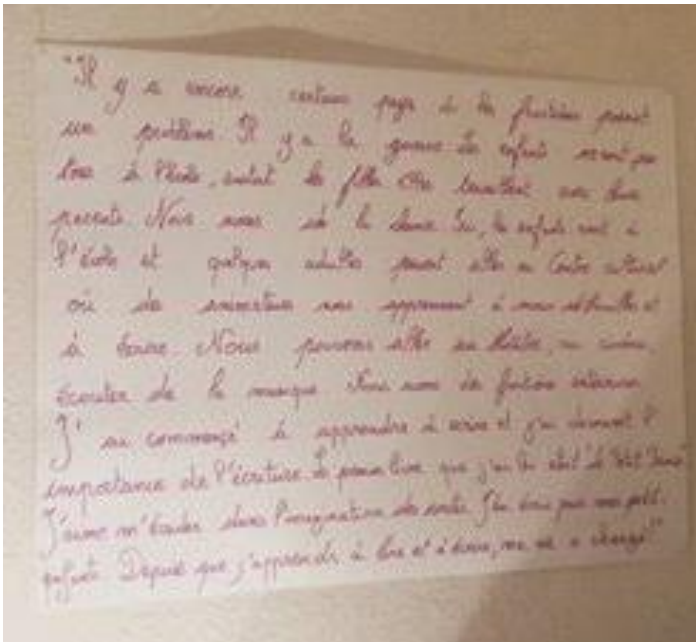 "Il y a encore certains pays où les femmes posent
un problème. Il y a la guerre. Les enfants ne vont pas
tous à l'école, surtout les filles. Elles travaillent avec leurs
parents. Nous nous la chance. Ici, les enfants vont à
l'école et quelques adultes peuvent aller au Centre culturel
où des animateurs nous apprennent à nous débrouiller et
à écrire. Nous pouvons aller au théâtre, au cinéma,
écouter de la musique. Nous de
J'ai commencé à apprendre à écrire et j'ai découvert l'
importance de l'écriture. Le premier livre que j'ai lu était "Le Petit
J'aime m'évader dans l'imagination des contes. J'en écris pour mes petits-
enfants. Depuis que j'apprends à lire et à écrire, ma vie a changé!"